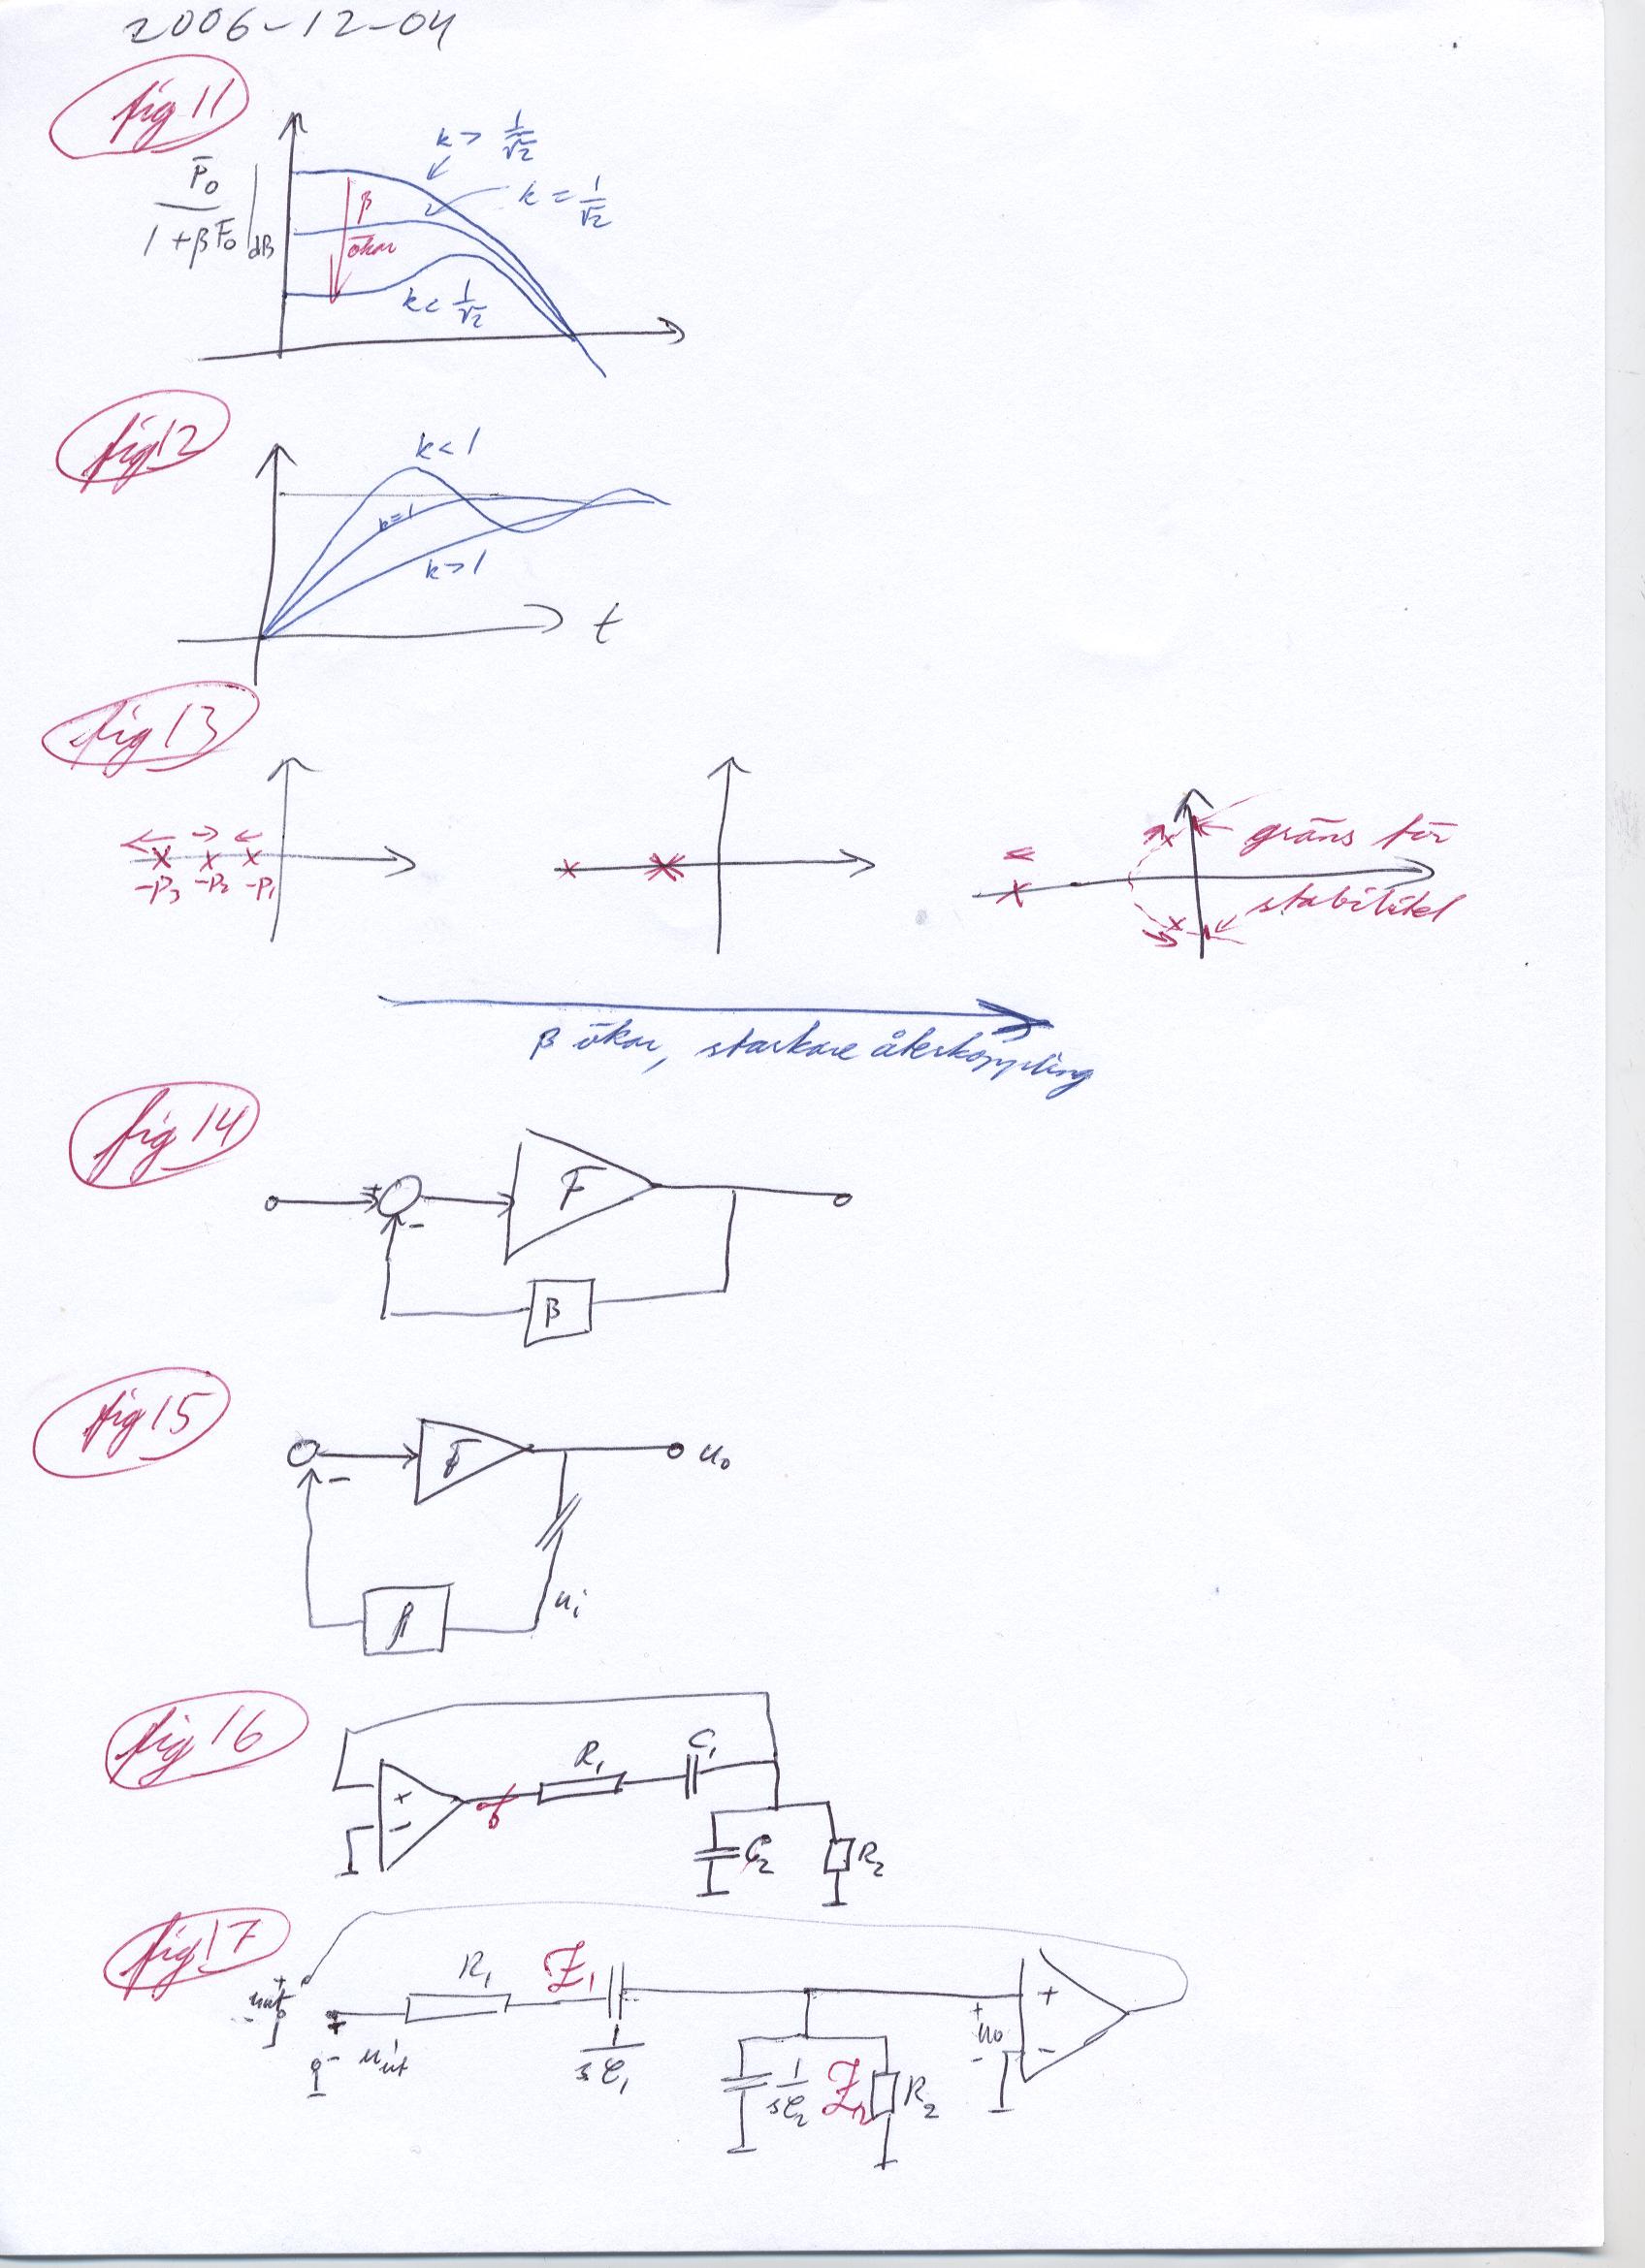 2006-12-04
fig 11
k > 1/√2
k = 1/√2
F₀
1 + βF₀ |dB
β
ökar
k < 1/√2
fig 12
k < 1
k=1
k > 1
t
fig 13
-p₃ -p₂ -p₁
gräns för
stabilitet
β ökar, starkare återkoppling
fig 14
+
-
F
β
fig 15
F
u₀
-
β
uᵢ
fig 16
R₁
C₁
+
-
C₂
R₂
fig 17
R₁
Z₁
+
uut
-
+
- u'ut
1
sC₁
+
u₀
-
+
-
1
sC₂
Z₂
R₂